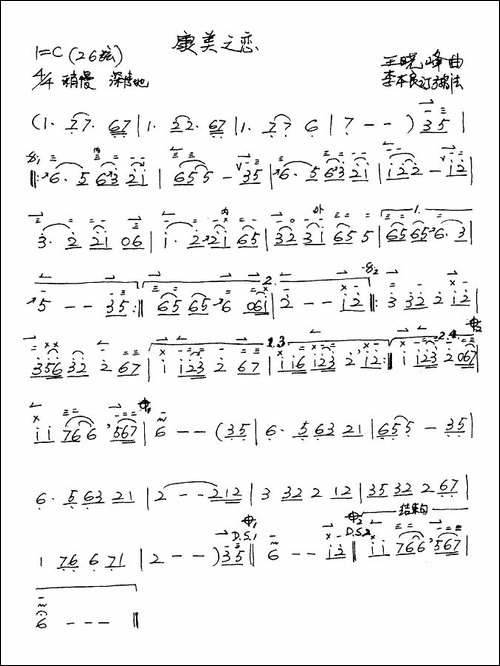 康美之恋
1=C (26弦)
4/4 稍慢 深情地
王晓峰 曲
李本良订指法
(1. 2 7. 67 | 1. 2 2. 67 | 1. 2 7 6 | 7 - - ) 35 |
‖: 6. 5 63 21 | 655 - 35 | 6. 5 63 21 | 122 - 12 |
3. 2 21 06 | 1. 221 65 | 32 31 65 5 | 65 65 6. 3 |
5 - - 35 :‖ 65 65 6 061 | 2 - - 12 ‖: 3 32 2 12 |
356 32 2 67 | 1 123 2 67 | 116 123 2 12 :‖ 1 123 2 067 |
1 1 766 567 | 6 - - (35 | 6. 5 63 21 | 655 - 35 |
6. 5 63 21 | 2 - - 212 | 3 32 2 12 | 35 32 2 67 |
1 76 6 71 | 2 - - ) 35 ‖ 6 - - 12 ‖ 1 1 766 567 |
D.S.1
D.S.2
结束句
6 - - - ‖